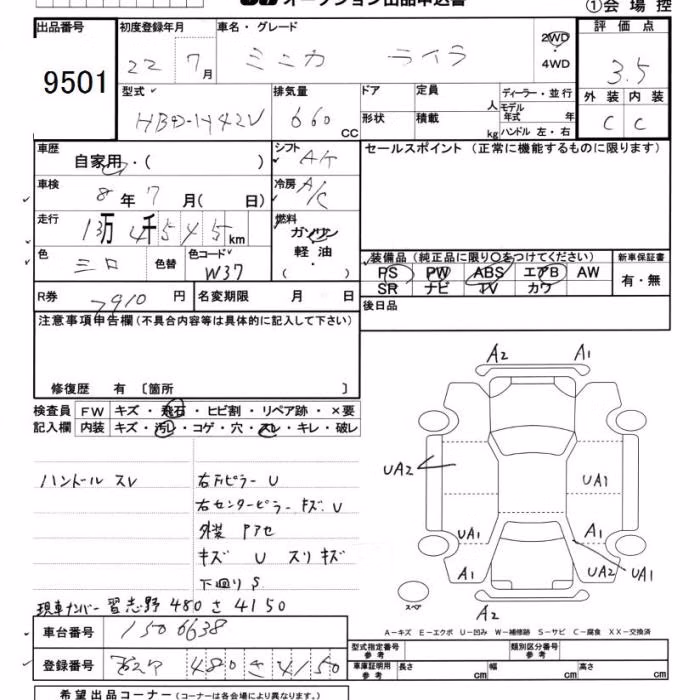 オークション出品申込書
①会場控
出品番号 初度登録年月 車名・グレード 評価点
9501 22 7月 ミニカ ライラ 2WD 4WD 3.5
型式 排気量 ドア 定員 人 ディーラー・並行 外装 内装
HBD-H42V 660 CC 形状 積載 kg モデル年式 年 ハンドル 左・右 C C
車歴 自家用・( ) シフト AT セールスポイント (正常に機能するものに限ります)
車検 8年 7月( 日) 冷房 A/C
走行 13万 4千 5 4 5 km 燃料 ガソリン 軽油 ( )
色 シロ 色替 色コード W37
装備品 (純正品に限り○をつけてください) 新車保証書
PS PW ABS エアB AW 有・無
SR ナビ TV カワ
R券 7910 円 名変期限 月 日 後日品
注意事項申告欄 (不具合内容等は具体的に記入して下さい)
修復歴 有 〔箇所 〕
検査員記入欄 FW キズ・飛石・ヒビ割・リペア跡・×要
内装 キズ・汚レ・コゲ・穴・スレ・キレ・破レ
ハンドル スレ 右Fピラー U
右センターピラー キズ、U
外装 Pアセ
キズ U スリキズ
下回り S
現車ナンバー 習志野 480 さ 4150
A2 A1
UA2 UA1
UA1 A1
A1 UA2 UA1
スペア A2
A-キズ E-エクボ U-凹み W-補修跡 S-サビ C-腐食 XX-交換済
車台番号 1506638
登録番号 480 さ 4150
型式指定番号 参考 類別区分番号 参考
車庫証明用 参考 長さ cm 幅 cm 高さ cm
希望出品コーナー (コーナーは各会場により異なります。)